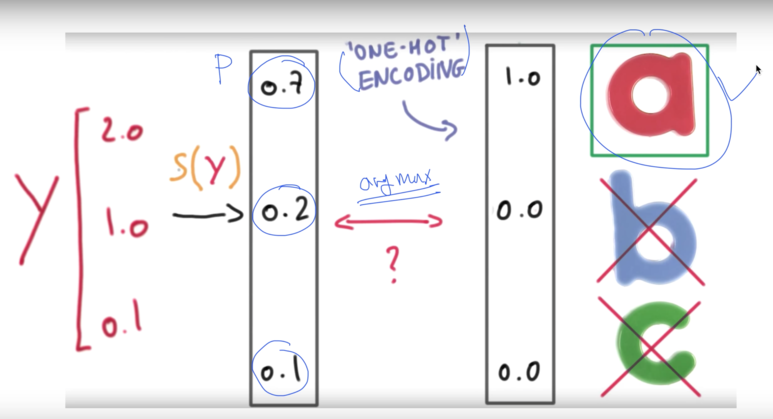 Y
2.0
1.0
0.1
S(Y)
P
0.7
0.2
0.1
('ONE-HOT'
ENCODING)
argmax
?
1.0
0.0
0.0
a
b
c